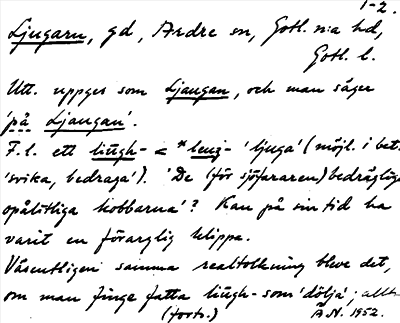 1-2.
Ljugarn, gd, Ardre sn, Gotl. n:a hd,
Gotl. l.
Utt. uppges som Ljaugan, och man säger
'på Ljaugan'.
F.l. ett liŭgh- < *leug- 'ljuga' (möjl. i bet.
'svika, bedraga'). 'De (för sjöfararen) bedrägliga
opålitliga kobbarna'? Kan på sin tid ha
varit en förarglig klippa.
Väsentligen samma realtolkning bleve det,
om man finge fatta liŭgh- som 'dölja'; allt
(forts.) Å.N. 1952.